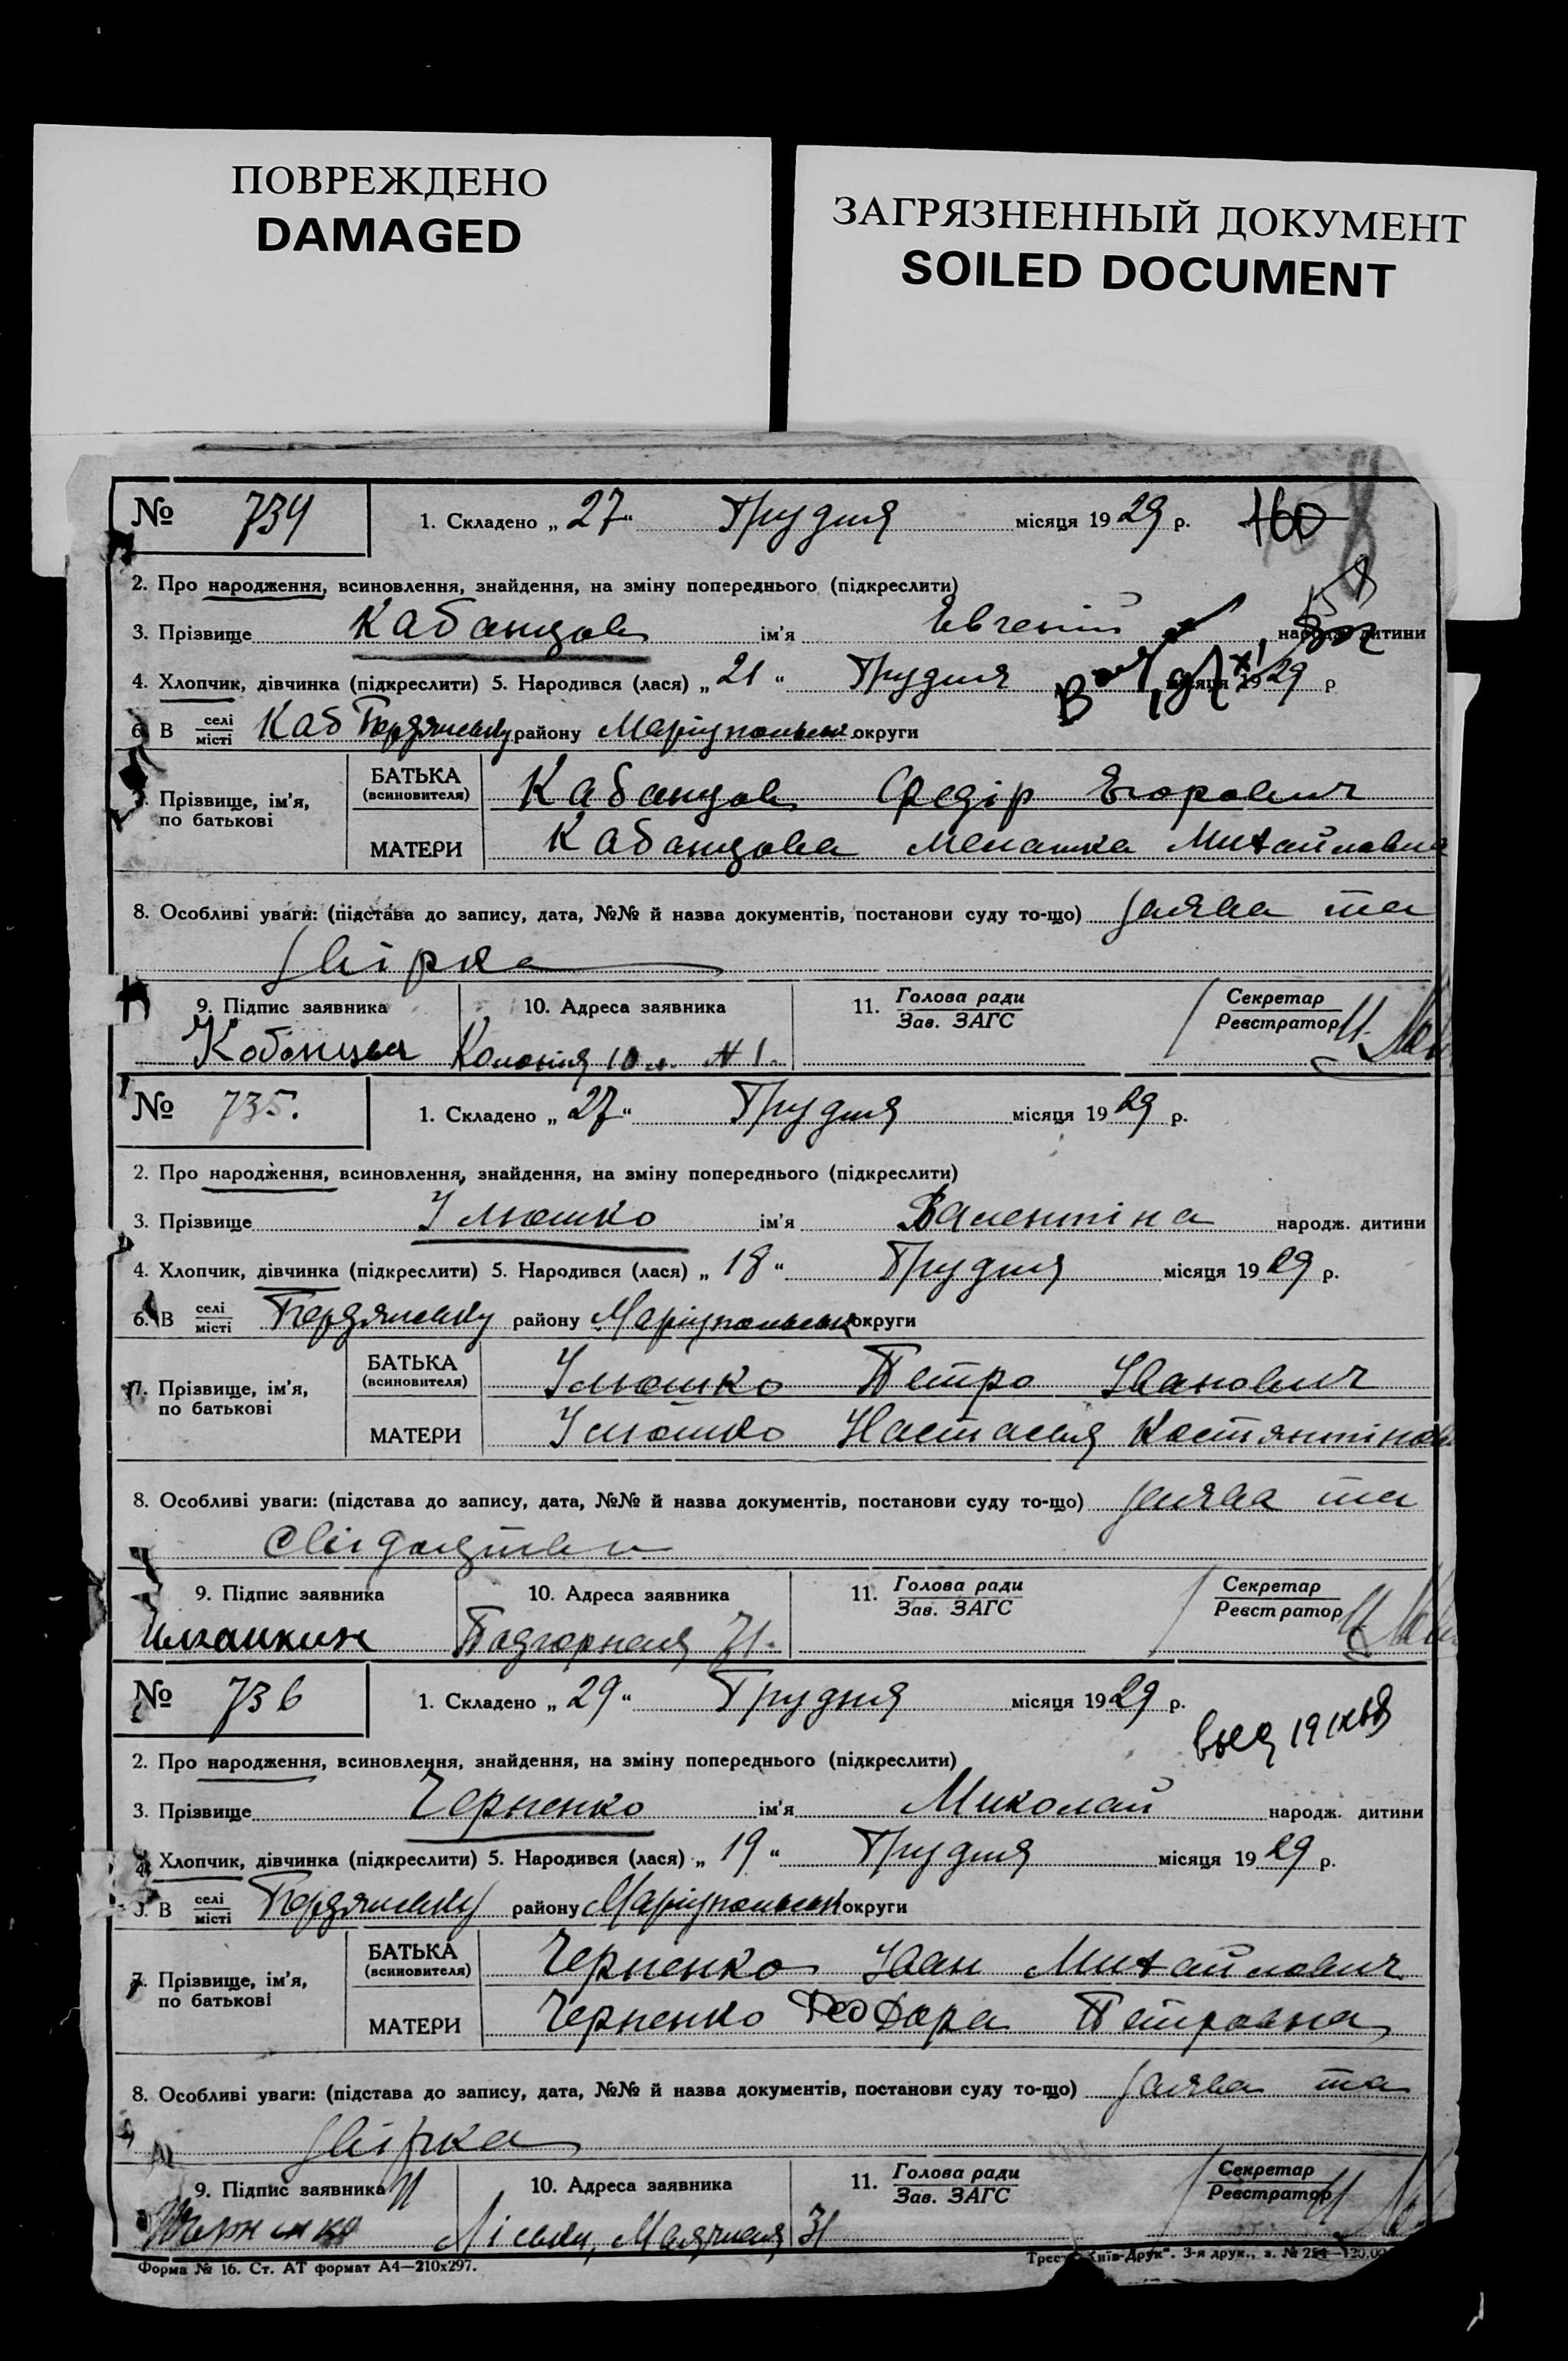 ПОВРЕЖДЕНО
DAMAGED
ЗАГРЯЗНЕННЫЙ ДОКУМЕНТ
SOILED DOCUMENT
№ 734 1. Складено „ 27 “ Грудня місяця 19 29 р. 760
2. Про народження, всиновлення, знайдення, на зміну попереднього (підкреслити)
3. Прізвище Кабанцов ім'я Евгеній народж. дитини
4. Хлопчик, дівчинка (підкреслити) 5. Народився (лася) „ 21 “ Грудня місяця 19 29 р
6. В селі місті Каб Бердянську району Маріупольськ округи
7. Прізвище, ім'я, по батькові
БАТЬКА (всиновителя) Кабанцов Федір Егорович
МАТЕРИ Кабанцова Меланка Михайловна
8. Особливі уваги: (підстава до запису, дата, №№ й назва документів, постанови суду то-що) заява та
звірка
9. Підпис заявника 10. Адреса заявника 11. Голова ради Зав. ЗАГС Секретар Реєстратор
Колонія 10 № 1.
№ 735. 1. Складено „ 27 “ Грудня місяця 19 29 р.
2. Про народження, всиновлення, знайдення, на зміну попереднього (підкреслити)
3. Прізвище Ілюшко ім'я Валентіна народж. дитини
4. Хлопчик, дівчинка (підкреслити) 5. Народився (лася) „ 18 “ Грудня місяця 19 29 р.
6. В селі місті Бердянську району Маріупольськ округи
7. Прізвище, ім'я, по батькові
БАТЬКА (всиновителя) Ілюшко Петро Іванович
МАТЕРИ Ілюшко Настасья Костянтінов
8. Особливі уваги: (підстава до запису, дата, №№ й назва документів, постанови суду то-що) заява та
9. Підпис заявника 10. Адреса заявника 11. Голова ради Зав. ЗАГС Секретар Реєстратор
Подгорная 71.
№ 736 1. Складено „ 29 “ Грудня місяця 19 29 р.
2. Про народження, всиновлення, знайдення, на зміну попереднього (підкреслити)
3. Прізвище Черненко ім'я Миколай народж. дитини
4. Хлопчик, дівчинка (підкреслити) 5. Народився (лася) „ 19 “ Грудня місяця 19 29 р.
В селі місті Бердянську району Маріупольськ округи
7. Прізвище, ім'я, по батькові
БАТЬКА (всиновителя) Черненко Іван Михайлович
МАТЕРИ Черненко Феодора Петровна
8. Особливі уваги: (підстава до запису, дата, №№ й назва документів, постанови суду то-що) заява та
звірка
9. Підпис заявника 10. Адреса заявника 11. Голова ради Зав. ЗАГС Секретар Реєстратор
Черненко Ліски, Маячная 31
Форма № 16. Ст. АТ формат А4—210х297.